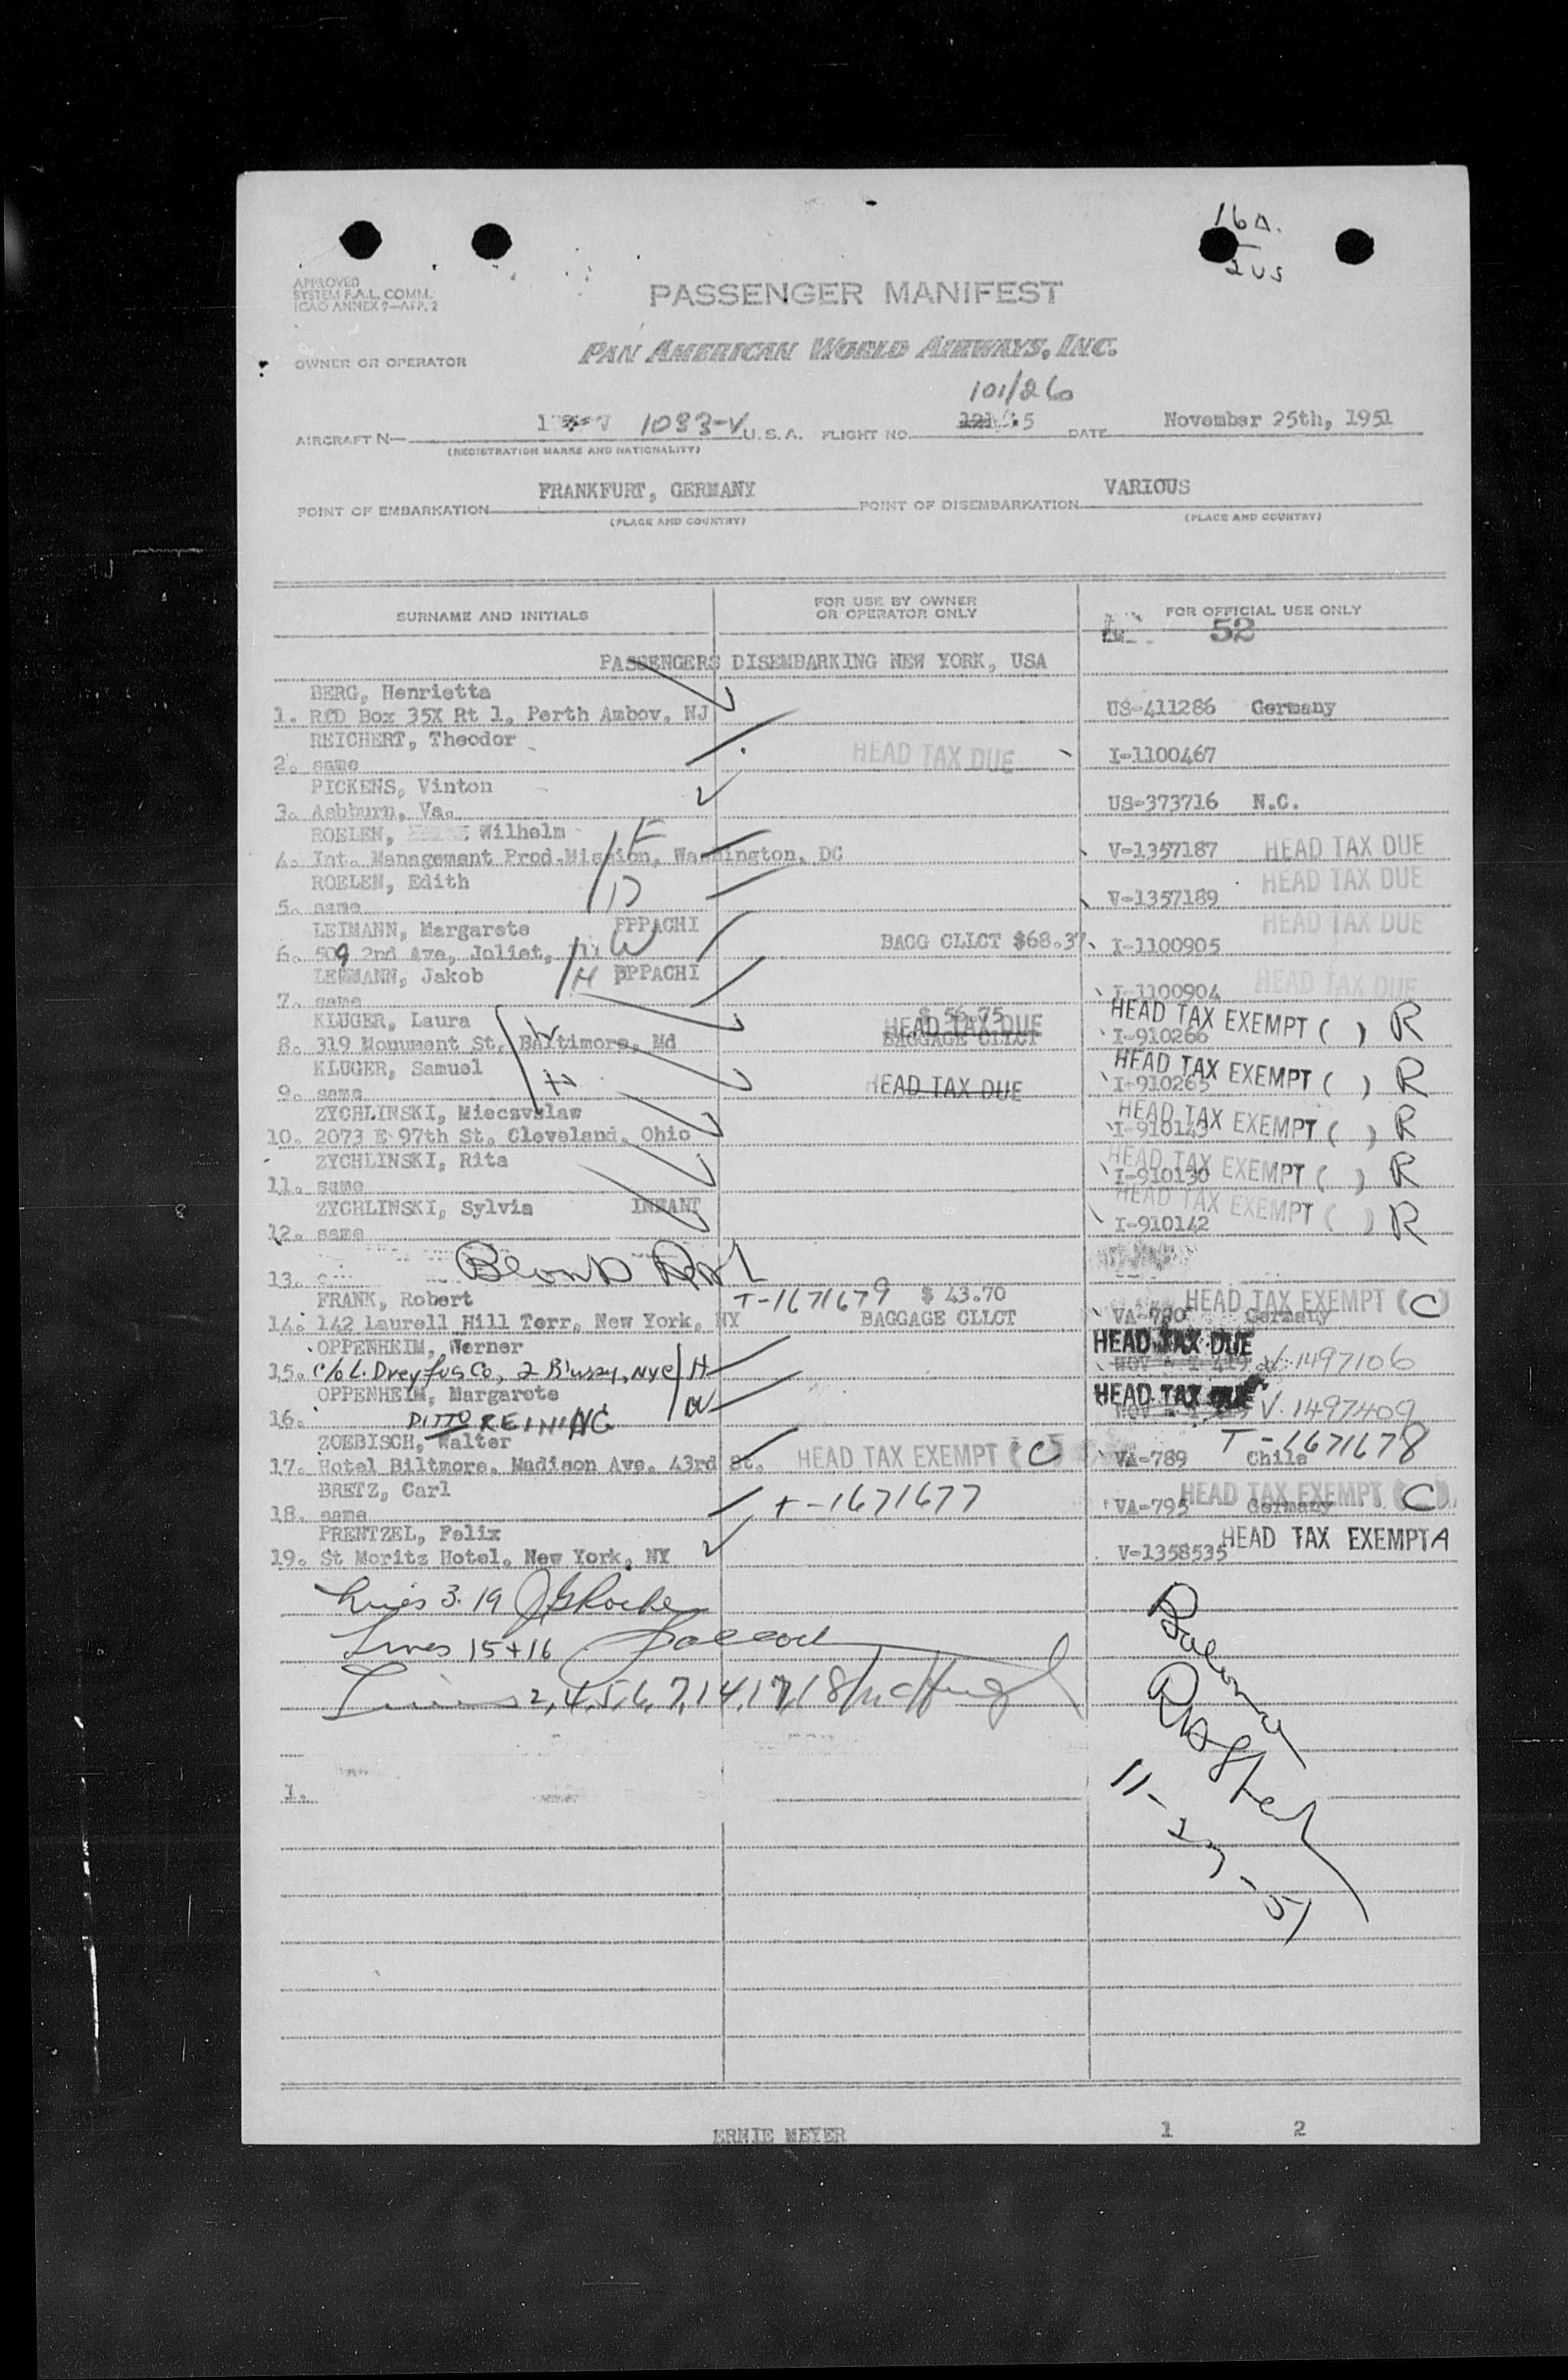 16A.
2 US
APPROVED
SYSTEM F.A.L. COMM.
ICAO ANNEX 9—APP. 2
PASSENGER MANIFEST
OWNER OR OPERATOR
PAN AMERICAN WORLD AIRWAYS, INC.
101/26
AIRCRAFT N— 1033-V U. S. A. FLIGHT NO. DATE November 25th, 1951
(REGISTRATION MARKS AND NATIONALITY)
POINT OF EMBARKATION FRANKFURT, GERMANY POINT OF DISEMBARKATION VARIOUS
(PLACE AND COUNTRY) (PLACE AND COUNTRY)
SURNAME AND INITIALS FOR USE BY OWNER OR OPERATOR ONLY FOR OFFICIAL USE ONLY
52
PASSENGERS DISEMBARKING NEW YORK, USA
BERG, Henrietta
1. RfD Box 35X Rt 1, Perth Ambov, NJ US-411286 Germany
REICHERT, Theodor
2. same HEAD TAX DUE I-1100467
PICKENS, Vinton
3. Ashburn, Va. US-373716 N.C.
ROELEN, Wilhelm
4. Int. Management Prod.Mission, Washington, DC V-1357187 HEAD TAX DUE
ROELEN, Edith HEAD TAX DUE
5. same V-1357189
LEIMANN, Margarete PPPACHI HEAD TAX DUE
6. 509 2nd Ave, Joliet, W BAGG CLLCT $68.37 I-1100905
LEHMANN, Jakob H PPPACHI
7. same I-1100904 HEAD TAX DUE
KLUGER, Laura $ 56.75 HEAD TAX DUE HEAD TAX EXEMPT ( ) R
8. 319 Monument St, Baltimore, Md BAGGAGE CLLCT I-910266
KLUGER, Samuel HEAD TAX EXEMPT ( ) R
9. same HEAD TAX DUE I-910265
ZYCHLINSKI, Mieczvslaw HEAD TAX EXEMPT ( ) R
10. 2073 E 97th St, Cleveland, Ohio
ZYCHLINSKI, Rita HEAD TAX EXEMPT ( ) R
11. same I-910130
ZYCHLINSKI, Sylvia INFANT HEAD TAX EXEMPT ( ) R
12. same I-910142
13.
FRANK, Robert T-1671679 $ 43.70 HEAD TAX EXEMPT (C)
14. 142 Laurell Hill Terr, New York, NY BAGGAGE CLLCT VA-790 Germany
OPPENHEIM, Werner HEAD TAX DUE
15. c/o L. Dreyfus Co, 2 B'way, NYC H V-1497106
OPPENHEIM, Margarete W HEAD TAX DUE
16. DITTO REINING V-1497409
ZOEBISCH, Walter T-1671678
17. Hotel Biltmore, Madison Ave. 43rd St. HEAD TAX EXEMPT (C) VA-789 Chile
BRETZ, Carl T-1671677 HEAD TAX EXEMPT (C)
18. same VA-795 Germany
PRENTZEL, Felix HEAD TAX EXEMPT A
19. St Moritz Hotel, New York, NY V-1358535
Lines 3. 19
Lines 15+16
Lines 2, 4, 5, 6, 7, 14, 17, 18
11-25-51
1.
ERNIE MEYER 1 2